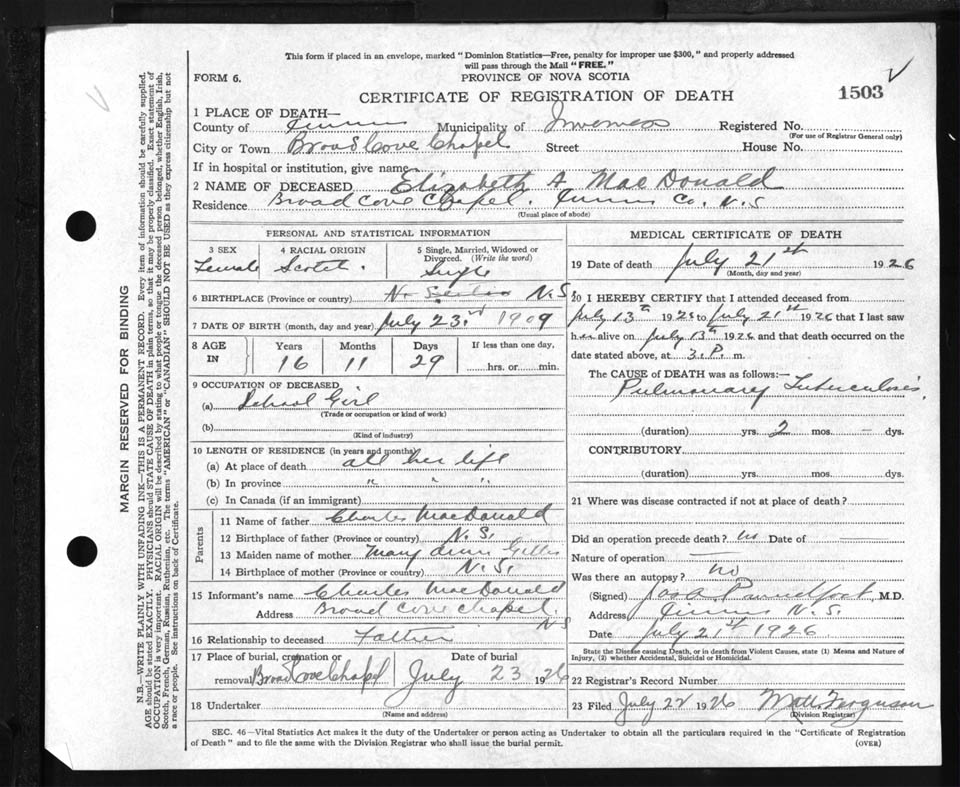 This form if placed in an envelope, marked "Dominion Statistics—Free, penalty for improper use $300," and properly addressed
will pass through the Mail "FREE."
FORM 6.
PROVINCE OF NOVA SCOTIA
CERTIFICATE OF REGISTRATION OF DEATH
1503
1 PLACE OF DEATH—
County of Municipality of Inverness Registered No.
(For use of Registrar General only)
City or Town Broad Cove Chapel Street House No.
If in hospital or institution, give name
2 NAME OF DECEASED Elizabeth A MacDonald
Residence Broad Cove Chapel. Co. N.S
(Usual place of abode)
PERSONAL AND STATISTICAL INFORMATION
3 SEX 4 RACIAL ORIGIN 5 Single, Married, Widowed or Divorced. (Write the word)
Female Scotch. Single
6 BIRTHPLACE (Province or country) N.S.
7 DATE OF BIRTH (month, day and year) July 23rd 1909
8 AGE IN Years Months Days If less than one day,
16 11 29 hrs. or min.
9 OCCUPATION OF DECEASED
(a) School Girl
(Trade or occupation or kind of work)
(b)
(Kind of industry)
10 LENGTH OF RESIDENCE (in years and months)
(a) At place of death all her life
(b) In province " " "
(c) In Canada (if an immigrant)
Parents
11 Name of father Charles MacDonald
12 Birthplace of father (Province or country) N.S.
13 Maiden name of mother Mary Ann Gillis
14 Birthplace of mother (Province or country) N.S.
15 Informant's name Charles MacDonald
Address Broad Cove Chapel.
NS
16 Relationship to deceased Father
17 Place of burial, cremation or Date of burial
removal Broad Cove Chapel July 23 1926
18 Undertaker
(Name and address)
MEDICAL CERTIFICATE OF DEATH
19 Date of death July 21st 1926
(Month, day and year)
20 I HEREBY CERTIFY that I attended deceased from
July 13th 1926 to July 21st 1926 that I last saw
her alive on July 13th 1926 and that death occurred on the
date stated above, at 3. P. m.
The CAUSE OF DEATH was as follows:—
Pulmonary Tuberculosis
(duration) yrs. 2 mos. — dys.
CONTRIBUTORY
(duration) yrs. mos. dys.
21 Where was disease contracted if not at place of death?
Did an operation precede death? no Date of
Nature of operation —
Was there an autopsy? no
(Signed) M.D.
Address N.S.
Date July 21st 1926
State the Disease causing Death, or in death from Violent Causes, state (1) Means and Nature of
Injury, (2) whether Accidental, Suicidal or Homicidal.
22 Registrar's Record Number
23 Filed July 22 1926 Ferguson
(Division Registrar)
SEC. 46—Vital Statistics Act makes it the duty of the Undertaker or person acting as Undertaker to obtain all the particulars required in the "Certificate of Registration
of Death" and to file the same with the Division Registrar who shall issue the burial permit.
(OVER)
MARGIN RESERVED FOR BINDING
N.B.—WRITE PLAINLY WITH UNFADING INK—THIS IS A PERMANENT RECORD. Every item of information should be carefully supplied.
AGE should be stated EXACTLY. PHYSICIANS should STATE CAUSE OF DEATH in plain terms, so that it may be properly classified. Exact statement of
OCCUPATION is very important. RACIAL ORIGIN will be described by stating to what people or tongue the deceased person belonged, whether English, Irish,
Scotch, French, German, Russian, Ruthenian, etc. The terms "AMERICAN" or "CANADIAN" SHOULD NOT BE USED as they express citizenship but not
a race or people. See instructions on back of Certificate.